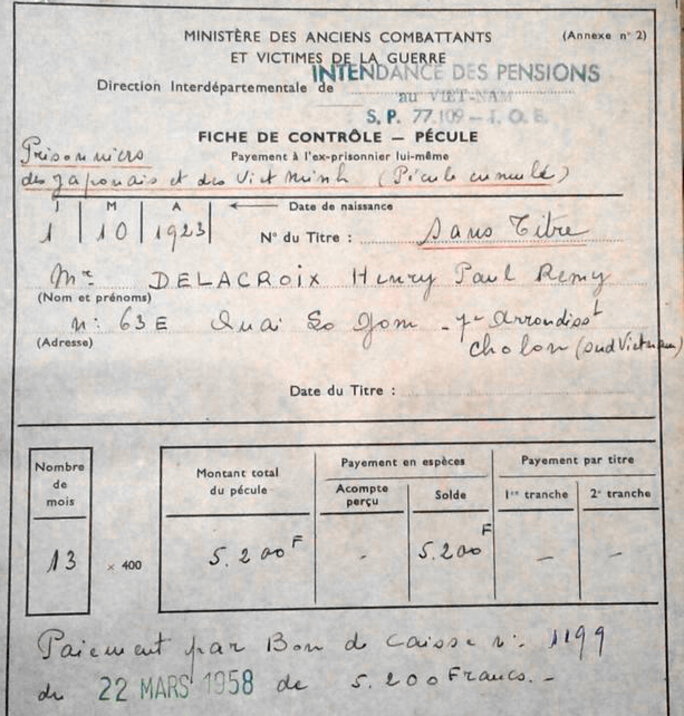 MINISTÈRE DES ANCIENS COMBATTANTS
(Annexe n° 2)
ET VICTIMES DE LA GUERRE
Direction Interdépartementale de
INTENDANCE DES PENSIONS
au VIET-NAM
S. P. 77.109 — T. O. E.
FICHE DE CONTRÔLE — PÉCULE
Payement à l'ex-prisonnier lui-même
Prisonniers
des Japonais et des Viet Minh (Pécule cumulé)
J M A ← Date de naissance
1 10 1923
N° du Titre : Sans Titre
Mr DELACROIX Henry Paul Remy
(Nom et prénoms)
n: 63 E Quai Lo Gom - 7e Arrondisst
(Adresse)
Cholon (Sud Vietnam)
Date du Titre :
Nombre de mois
Montant total du pécule
Payement en espèces
Payement par titre
Acompte perçu
Solde
1re tranche
2e tranche
13 × 400 5.200 F - 5.200 F — —
Paiement par Bon de Caisse n: 1199
du 22 MARS 1958 de 5.200 Francs.-